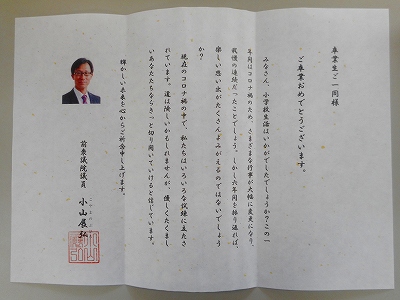 卒業生ご一同様
ご卒業おめでとうございます。
みなさん、小学校生活はいかがでしたでしょうか？この一
年間はコロナ禍のため、さまざまな行事が大幅に変更になり、
我慢の連続だったことでしょう。しかし六年間を振り返れば、
楽しい思い出がたくさんよみがえるのではないでしょう
か？
現在のコロナ禍の中で、私たちはいろいろな試練に立たさ
れています。道は険しいかもしれませんが、優しくたくまし
いあなたたちならきっと切り開いていけると信じています。
輝かしい未来を心からご祈念申し上げます。
前衆議院議員
小山展弘
こやまのぶひろ